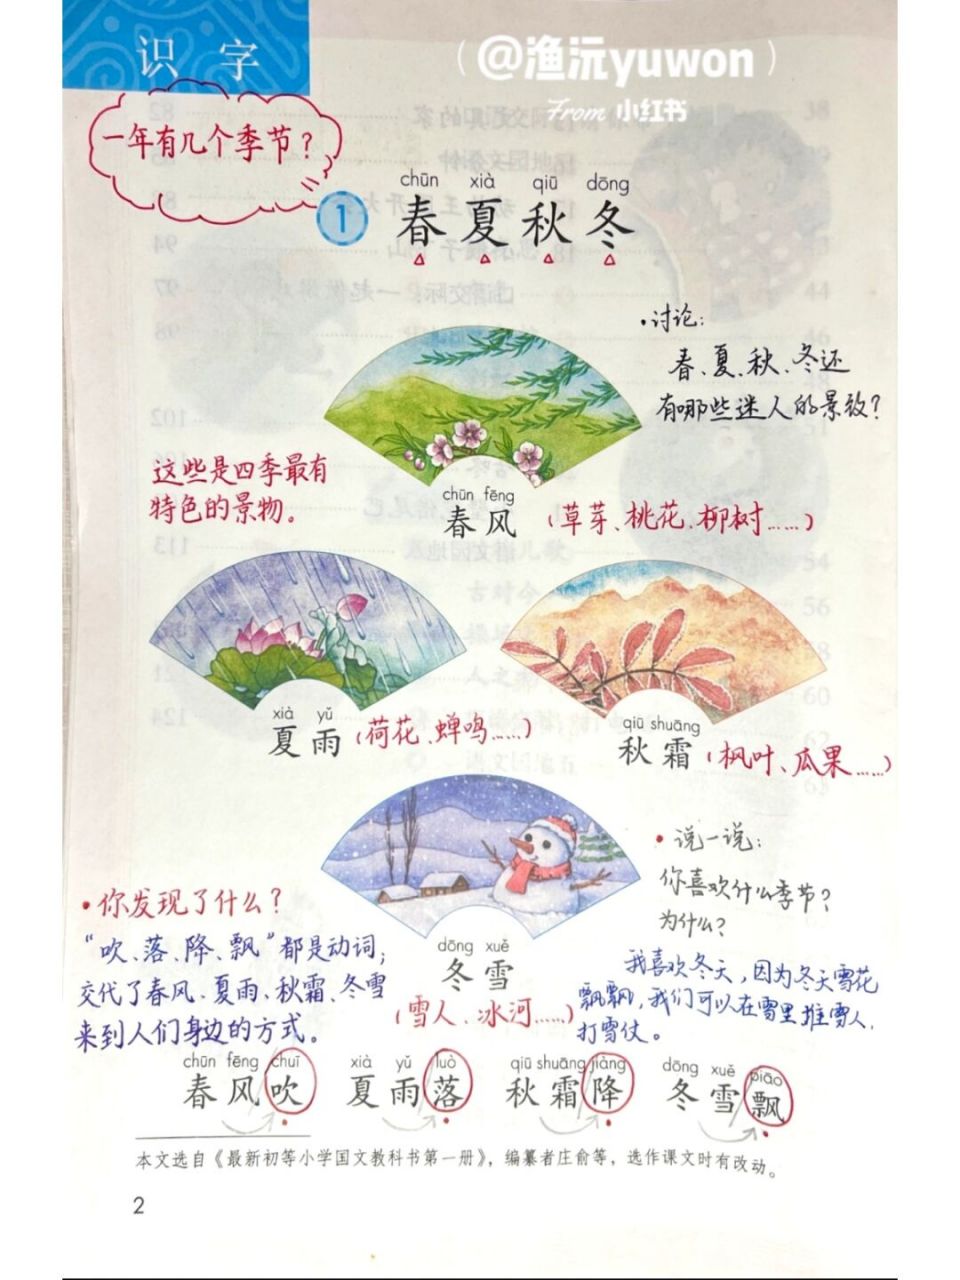 识字
(@渔沅yuwon)
From 小红书
一年有几个季节？
chūn xià qiū dōng
1 春夏秋冬
·讨论：
春、夏、秋、冬还
有哪些迷人的景致？
这些是四季最有
特色的景物。
chūn fēng
春风 (草芽、桃花、柳树……)
xià yǔ
夏雨 (荷花、蝉鸣……)
qiū shuāng
秋霜 (枫叶、瓜果……)
·说一说：
你喜欢什么季节？
为什么？
我喜欢冬天，因为冬天雪花
飘飘，我们可以在雪里堆雪人，
打雪仗。
·你发现了什么？
“吹、落、降、飘”都是动词；
交代了春风、夏雨、秋霜、冬雪
来到人们身边的方式。
dōng xuě
冬雪
(雪人、冰河……)
chūn fēng chuī xià yǔ luò qiū shuāng jiàng dōng xuě piāo
春风吹 夏雨落 秋霜降 冬雪飘
本文选自《最新初等小学国文教科书第一册》，编纂者庄俞等，选作课文时有改动。
2